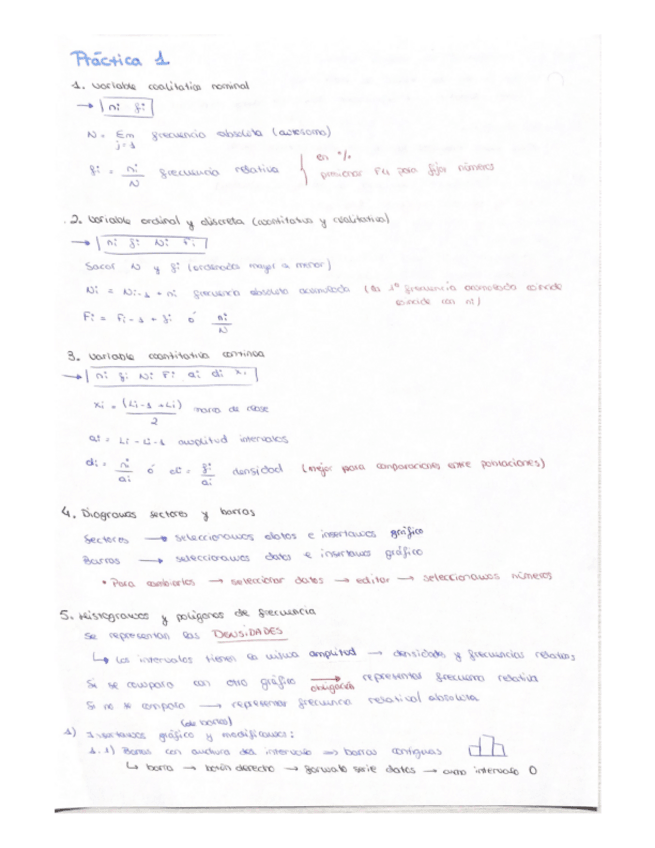 Práctica 1
1. Variable cualitativa nominal
→ ni fi
N = Σni frecuencia absoluta (autosuma)
j=1
fi = ni/N frecuencia relativa { en %
presionar F4 para fijar números
2. Variable ordinal y discreta (cuantitativa y cualitativa)
→ ni fi Ni Fi
Sacar N y fi (ordenados mayor a menor)
Ni = Ni-1 + ni frecuencia absoluta acumulada (la 1ª frecuencia acumulada coincide
coincide con n1)
Fi = Fi-1 + fi ó ni/N
3. Variable cuantitativa continua
→ ni fi Ni Fi ai di xi
xi = (Li-1 + Li)/2 marca de clase
ai = Li - Li-1 amplitud intervalos
di = ni/ai ó di = fi/ai densidad (mejor para comparaciones entre poblaciones)
4. Diagramas sectores y barras
Sectores → seleccionamos datos e insertamos gráfico
Barras → seleccionamos datos e insertamos gráfico
• Para cambiarlos → seleccionar datos → editar → seleccionamos números
5. Histogramas y polígonos de frecuencia
Se representan las DENSIDADES
↳ Los intervalos tienen la misma amplitud → densidades y frecuencias relativas
Si se compara con otro gráfico → representar frecuencia relativa
obligación
Si no se compara → representar frecuencia relativa/absoluta
(de barras)
1) Insertamos gráfico y modificamos:
1.1) Barras con anchura del intervalo ⇒ barras contiguas
↳ barra → botón derecho → formato serie datos → ancho intervalo 0